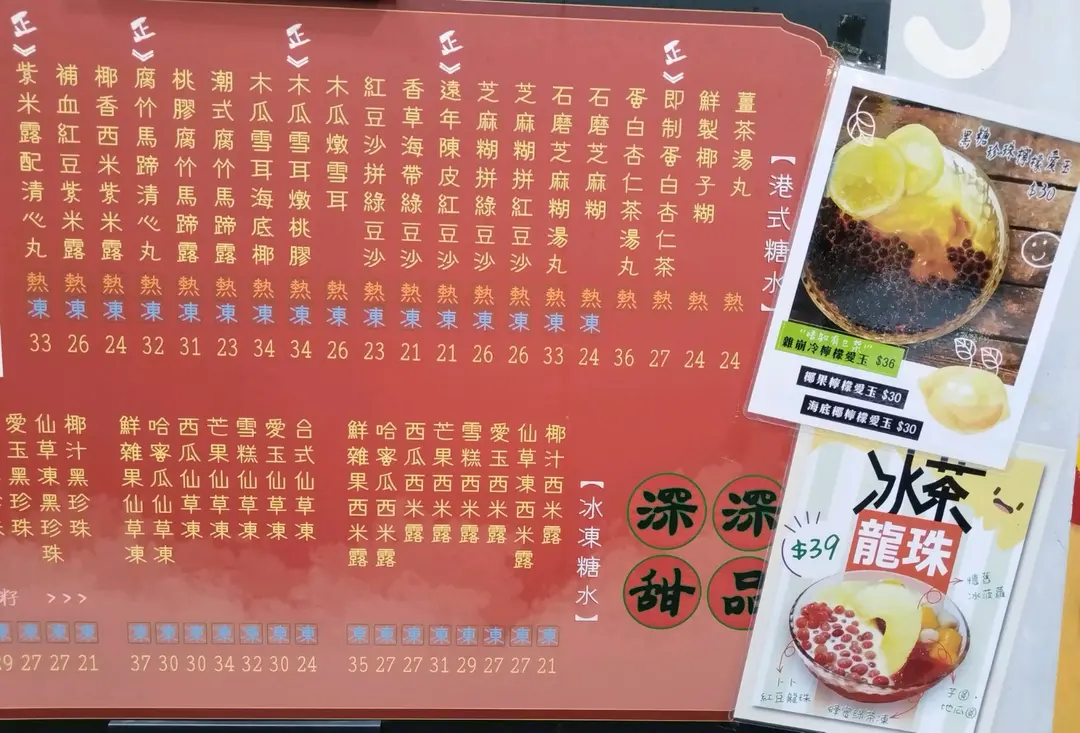 【港式糖水】
薑茶湯丸 熱 24
鮮製椰子糊 熱 24
正》即制蛋白杏仁茶 熱 27
蛋白杏仁茶湯丸 熱 36
石磨芝麻糊 熱 凍 24
石磨芝麻糊湯丸 熱 凍 33
芝麻糊拼紅豆沙 熱 凍 26
芝麻糊拼綠豆沙 熱 凍 26
正》遠年陳皮紅豆沙 熱 凍 21
香草海帶綠豆沙 熱 凍 21
紅豆沙拼綠豆沙 熱 凍 23
木瓜燉雪耳 熱 凍 26
正》木瓜雪耳燉桃膠 熱 凍 34
木瓜雪耳海底椰 熱 凍 34
潮式腐竹馬蹄露 熱 凍 23
桃膠腐竹馬蹄露 熱 凍 31
正》腐竹馬蹄清心丸 熱 凍 32
椰香西米紫米露 熱 凍 24
補血紅豆紫米露 熱 凍 26
正》紫米露配清心丸 熱 凍 33
【冰凍糖水】
椰汁西米露 凍 21
仙草凍西米露 凍 27
愛玉西米露 凍 27
雪糕西米露 凍 29
芒果西米露 凍 31
西瓜西米露 凍 27
哈蜜瓜西米露 凍 27
鮮雜果西米露 凍 35
台式仙草凍 凍 24
愛玉仙草凍 凍 30
雪糕仙草凍 凍 32
芒果仙草凍 凍 34
西瓜仙草凍 凍 30
哈蜜瓜仙草凍 凍 30
鮮雜果仙草凍 凍 37
椰汁黑珍珠 凍 21
仙草凍黑珍珠 凍 27
愛玉黑珍珠 凍 27
珠 凍 29
籽 >>>
深深
甜品
黑糖
珍珠檸檬愛玉
$30
雜崩冷檸檬愛玉 $36
椰果檸檬愛玉 $30
海底椰檸檬愛玉 $30
冰茶
龍珠
$39
冰菠蘿
紅豆龍珠
地瓜圓